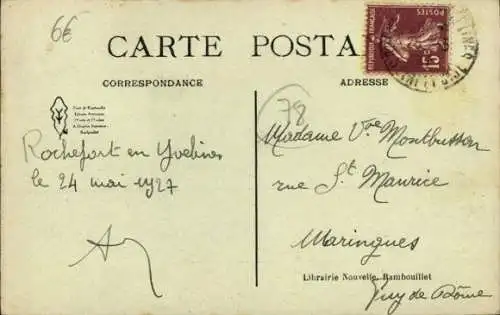 6€
CARTE POSTALE
CORRESPONDANCE
ADRESSE
POSTES
REPUBLIQUE FRANCAISE
15
78
Rochefort en Yvelines
le 24 mai 1927
Madame Vve Montbusson
rue St Maurice
Maringues
Puy de Dôme
Librairie Nouvelle, Rambouillet